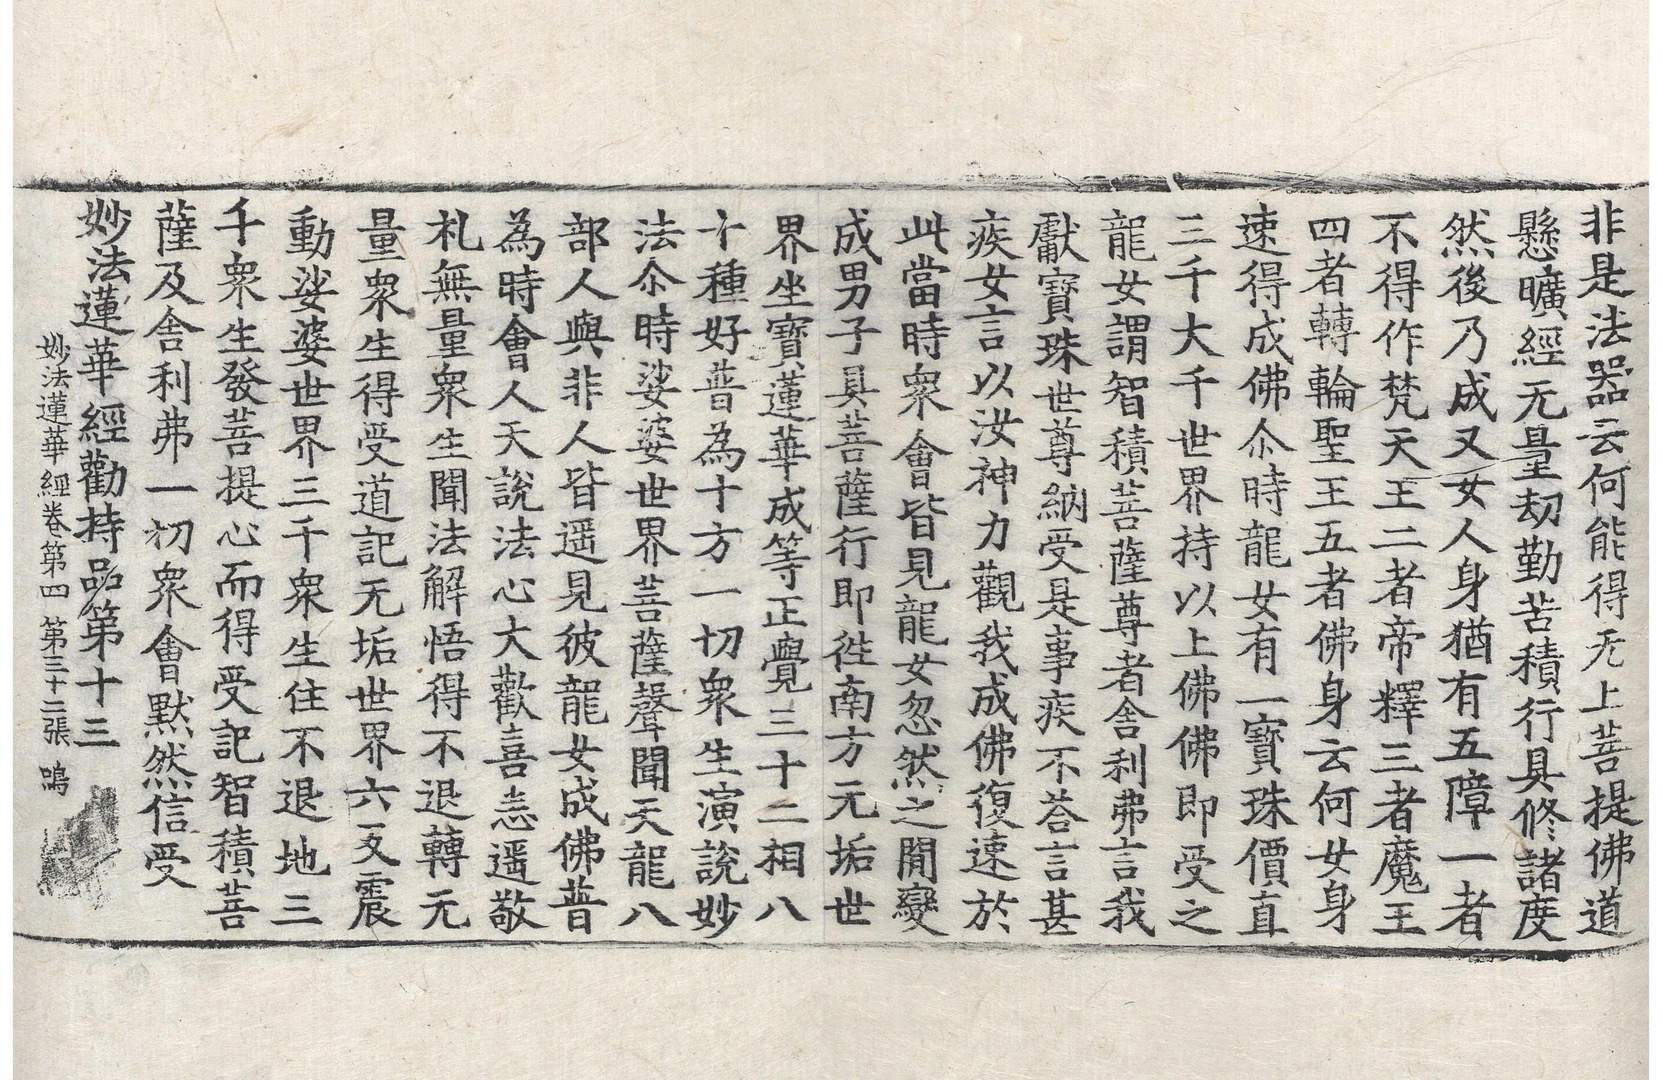 非是法器云何能得无上菩提佛道
懸曠經无量劫勤苦積行具修諸度
然後乃成又女人身猶有五障一者
不得作梵天王二者帝釋三者魔王
四者轉輪聖王五者佛身云何女身
速得成佛尒時龍女有一寶珠價直
三千大千世界持以上佛佛即受之
龍女謂智積菩薩尊者舍利弗言我
獻寶珠世尊納受是事疾不荅言甚
疾女言以汝神力觀我成佛復速於
此當時衆會皆見龍女忽然之閒變
成男子具菩薩行即徃南方无垢世
界坐寶蓮華成等正覺三十二相八
十種好普為十方一切衆生演說妙
法尒時娑婆世界菩薩聲聞天龍八
部人與非人皆遥見彼龍女成佛普
為時會人天說法心大歡喜悉遥敬
礼無量衆生聞法解悟得不退轉无
量衆生得受道記无垢世界六反震
動娑婆世界三千衆生住不退地三
千衆生發菩提心而得受記智積菩
薩及舍利弗一切衆會默然信受
妙法蓮華經勸持品第十三
妙法蓮華經卷第四 第三十二張 鳴